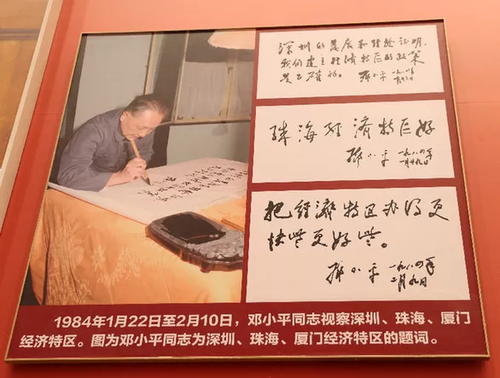 深圳的发展和经验证明，
我们建立经济特区的政策
是正确的。
邓小平
一九八四年
珠海经济特区好
邓小平
一九八四年
一月廿九日
把经济特区办得更
快些更好些。
邓小平
一九八四年
二月九日
1984年1月22日至2月10日，邓小平同志视察深圳、珠海、厦门
经济特区。图为邓小平同志为深圳、珠海、厦门经济特区的题词。